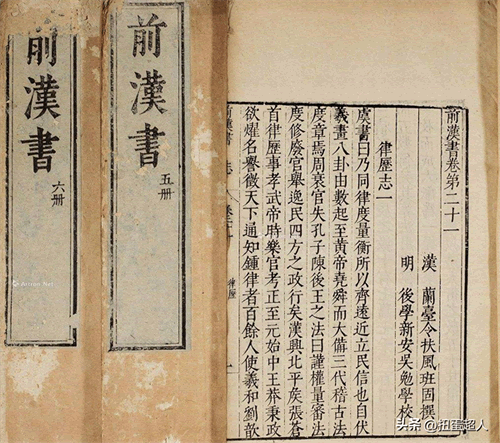 前漢書
六冊
前漢書
五冊
前漢書卷第二十一
漢 蘭臺令扶風班固撰
明 後學新安吳勉學校
律歷志一
虞書曰乃同律度量衡所以齊遠近立民信也自伏
羲畫八卦由數起至黃帝堯舜而大備三代稽古法
度章焉周衰官失孔子陳後王之法曰謹權量審法
度修廢官舉逸民四方之政行矣漢興北平矦張蒼
首律歷事孝武帝時樂官考正至元始中王莽秉政
欲燿名譽徵天下通知鍾律者百餘人使羲和劉歆
前漢書 志 律歷
头条 @扭蛋超人